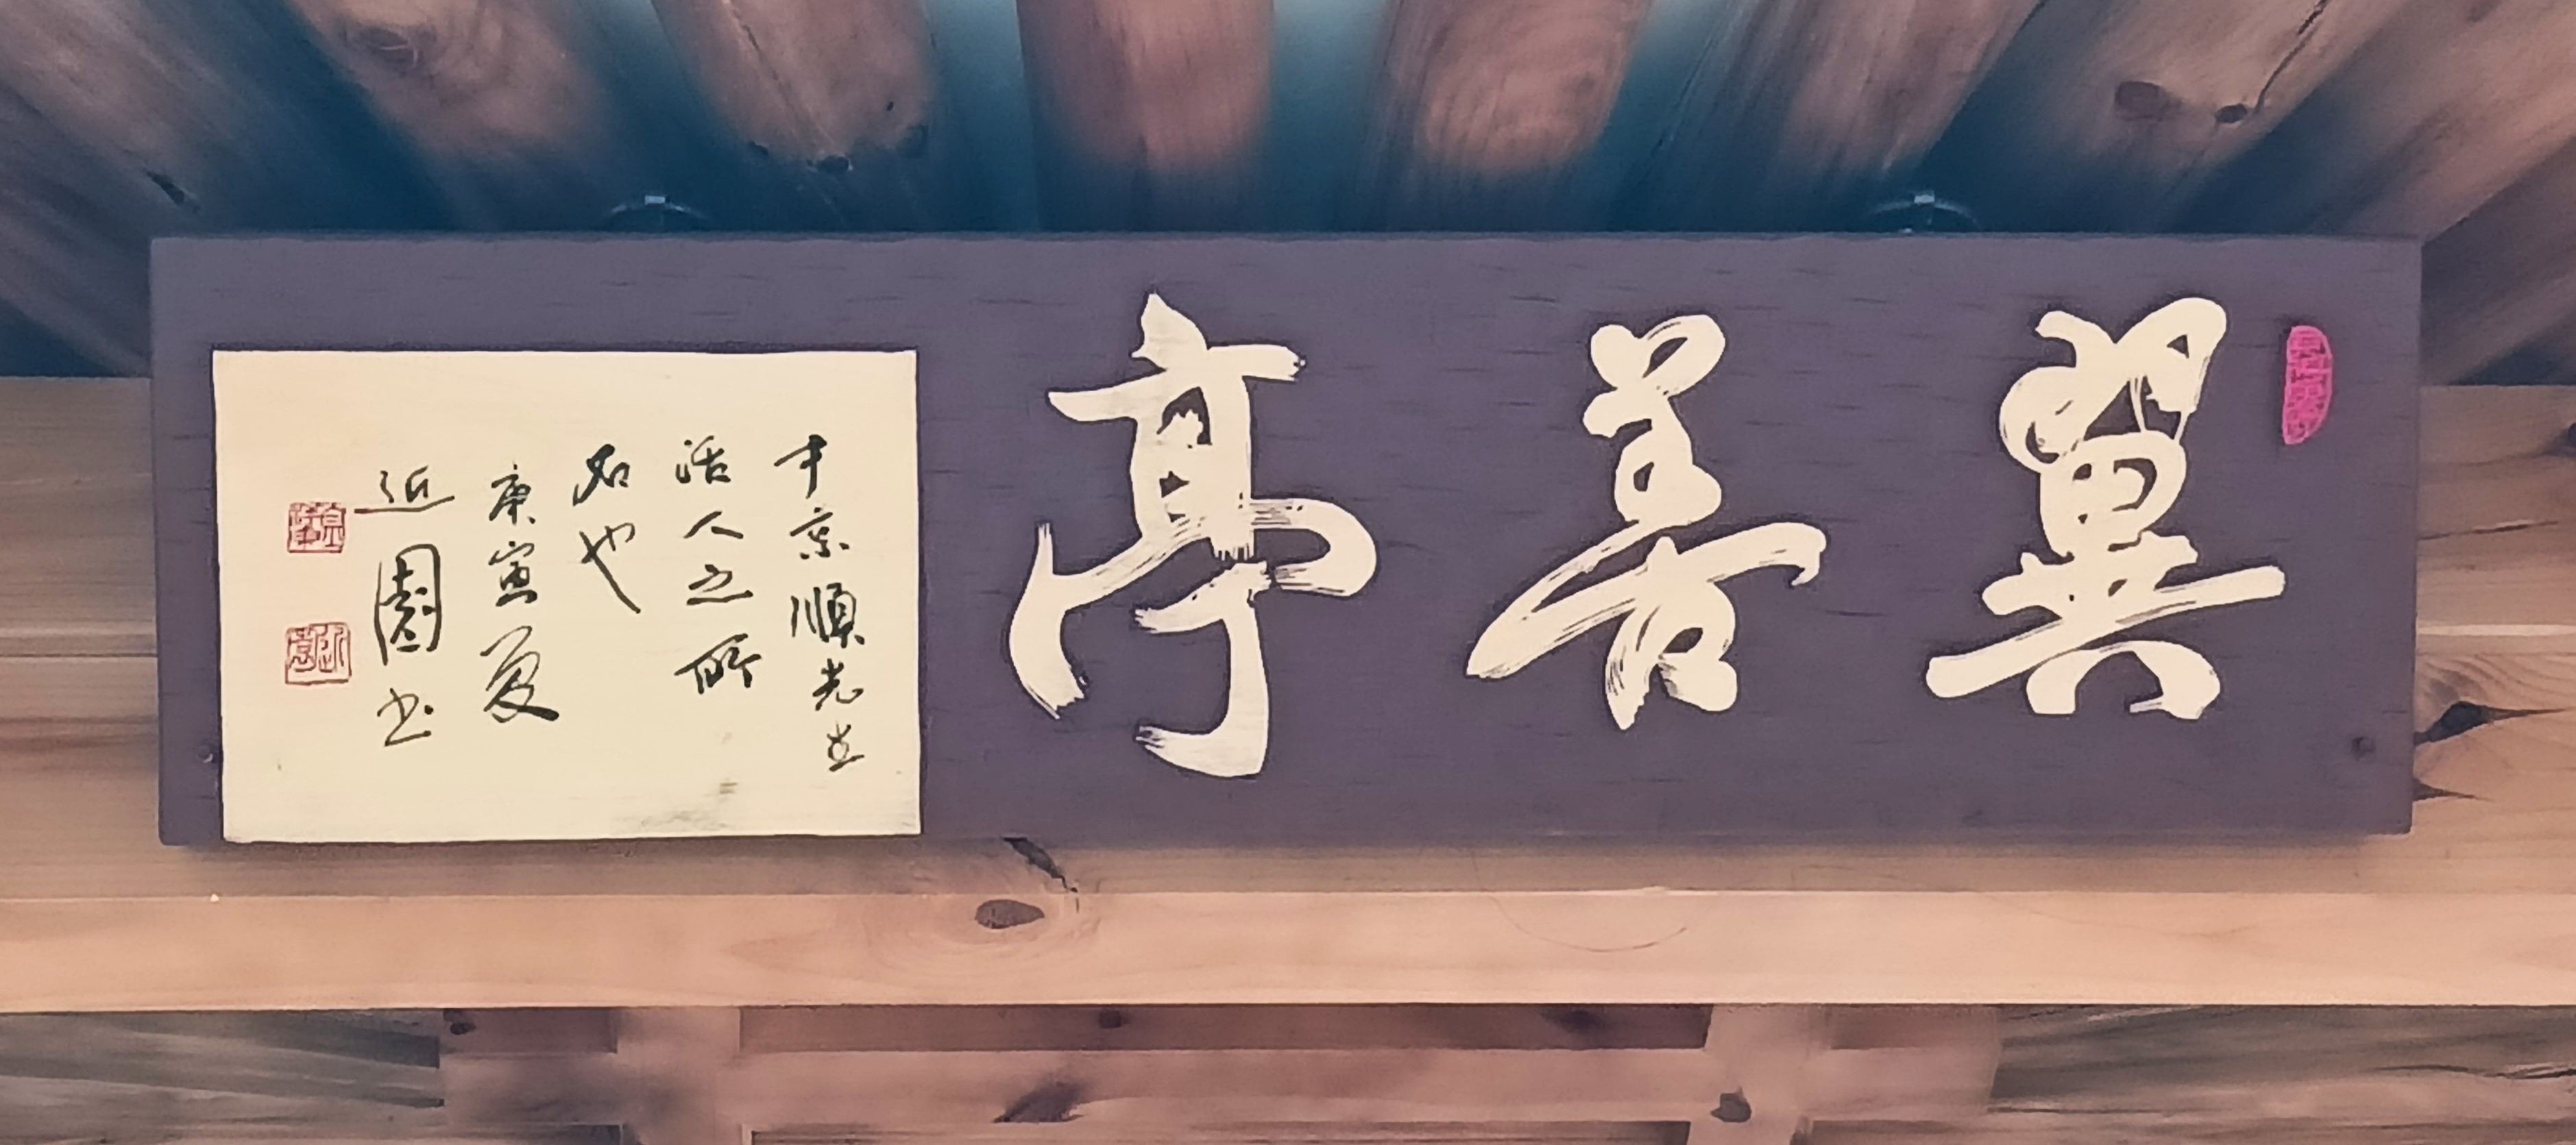 翼善亭
才京順先生
活人之所
名也
庚寅夏
近園書